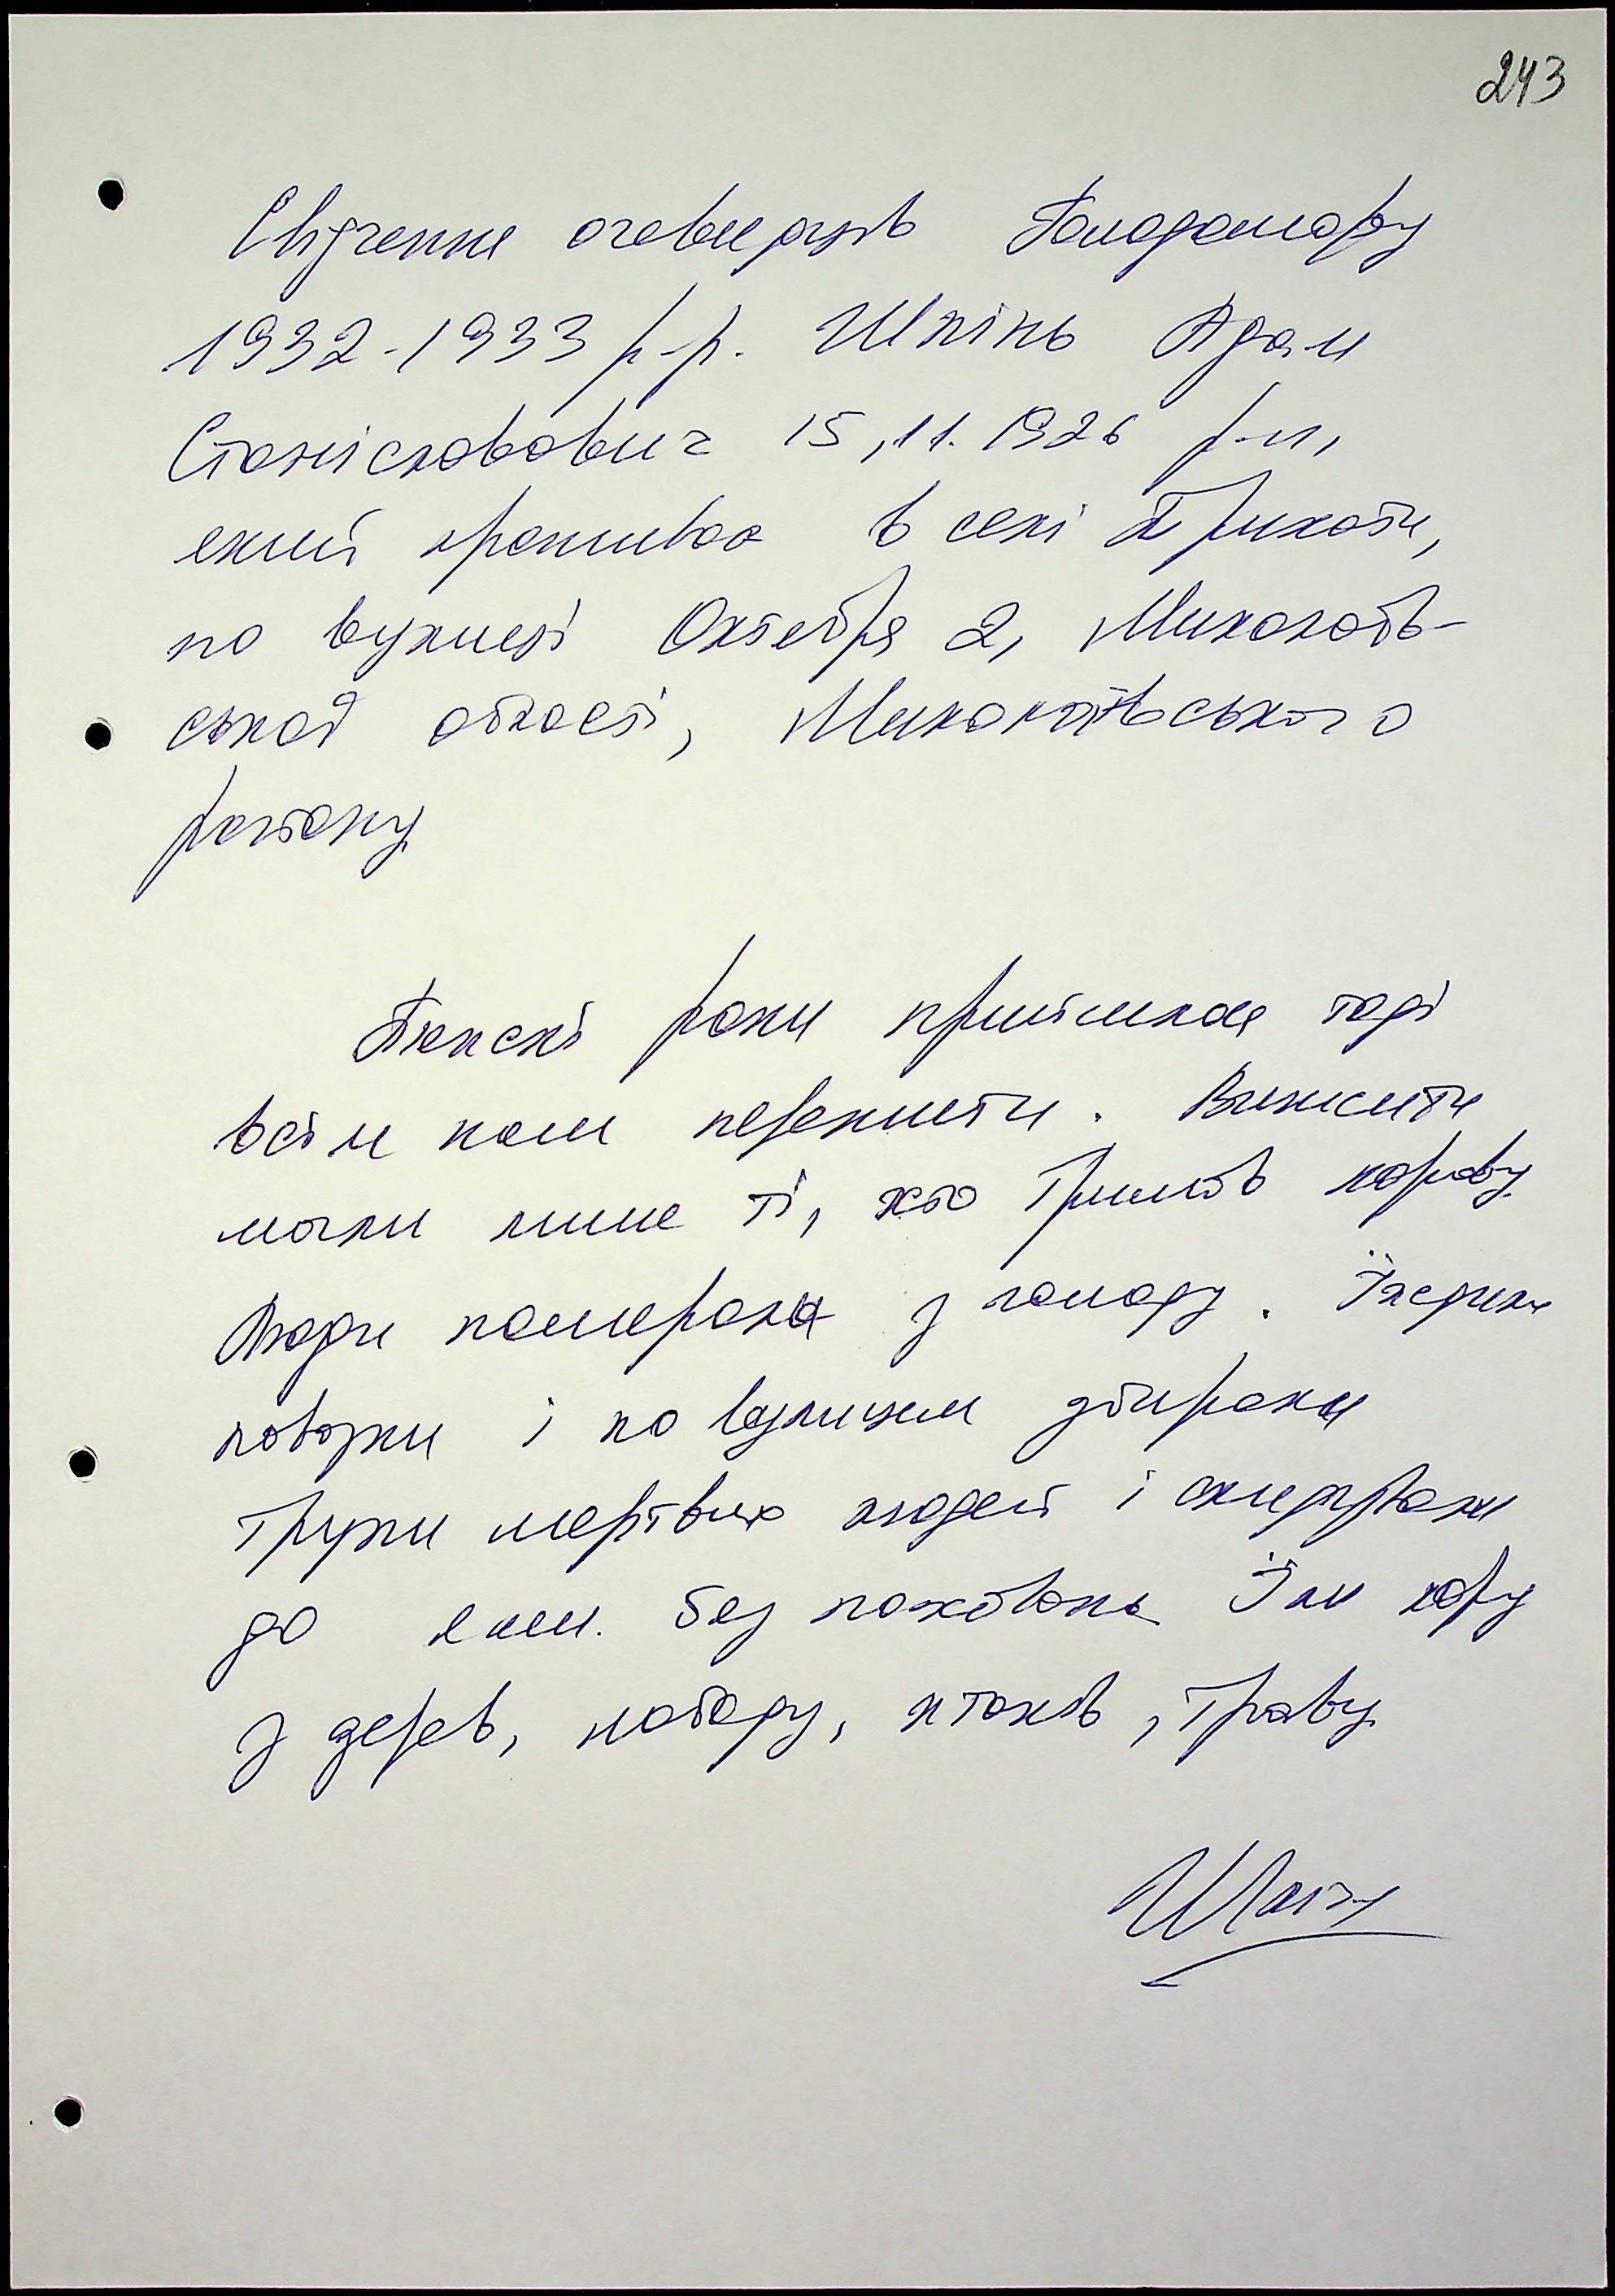 243
Свідчення очевидців Голодомору
1932-1933 р-р. Шпінь Адам
Станіславович 15,11.1926 р-н,
який проживає в селі Трихати,
по вулиці Октября 2, Миколаїв-
ської області, Миколаївського
району
Тяжкі роки прийшлося тоді
всім нам пережити. Вижити
могли лише ті, хто тримав корову
Люди помирали з голоду. Їздили
повозки і по вулицям збирали
трупи мертвих людей і скидували
до ями. без поховань Їли кору
з дерев, лободу, птахів, траву